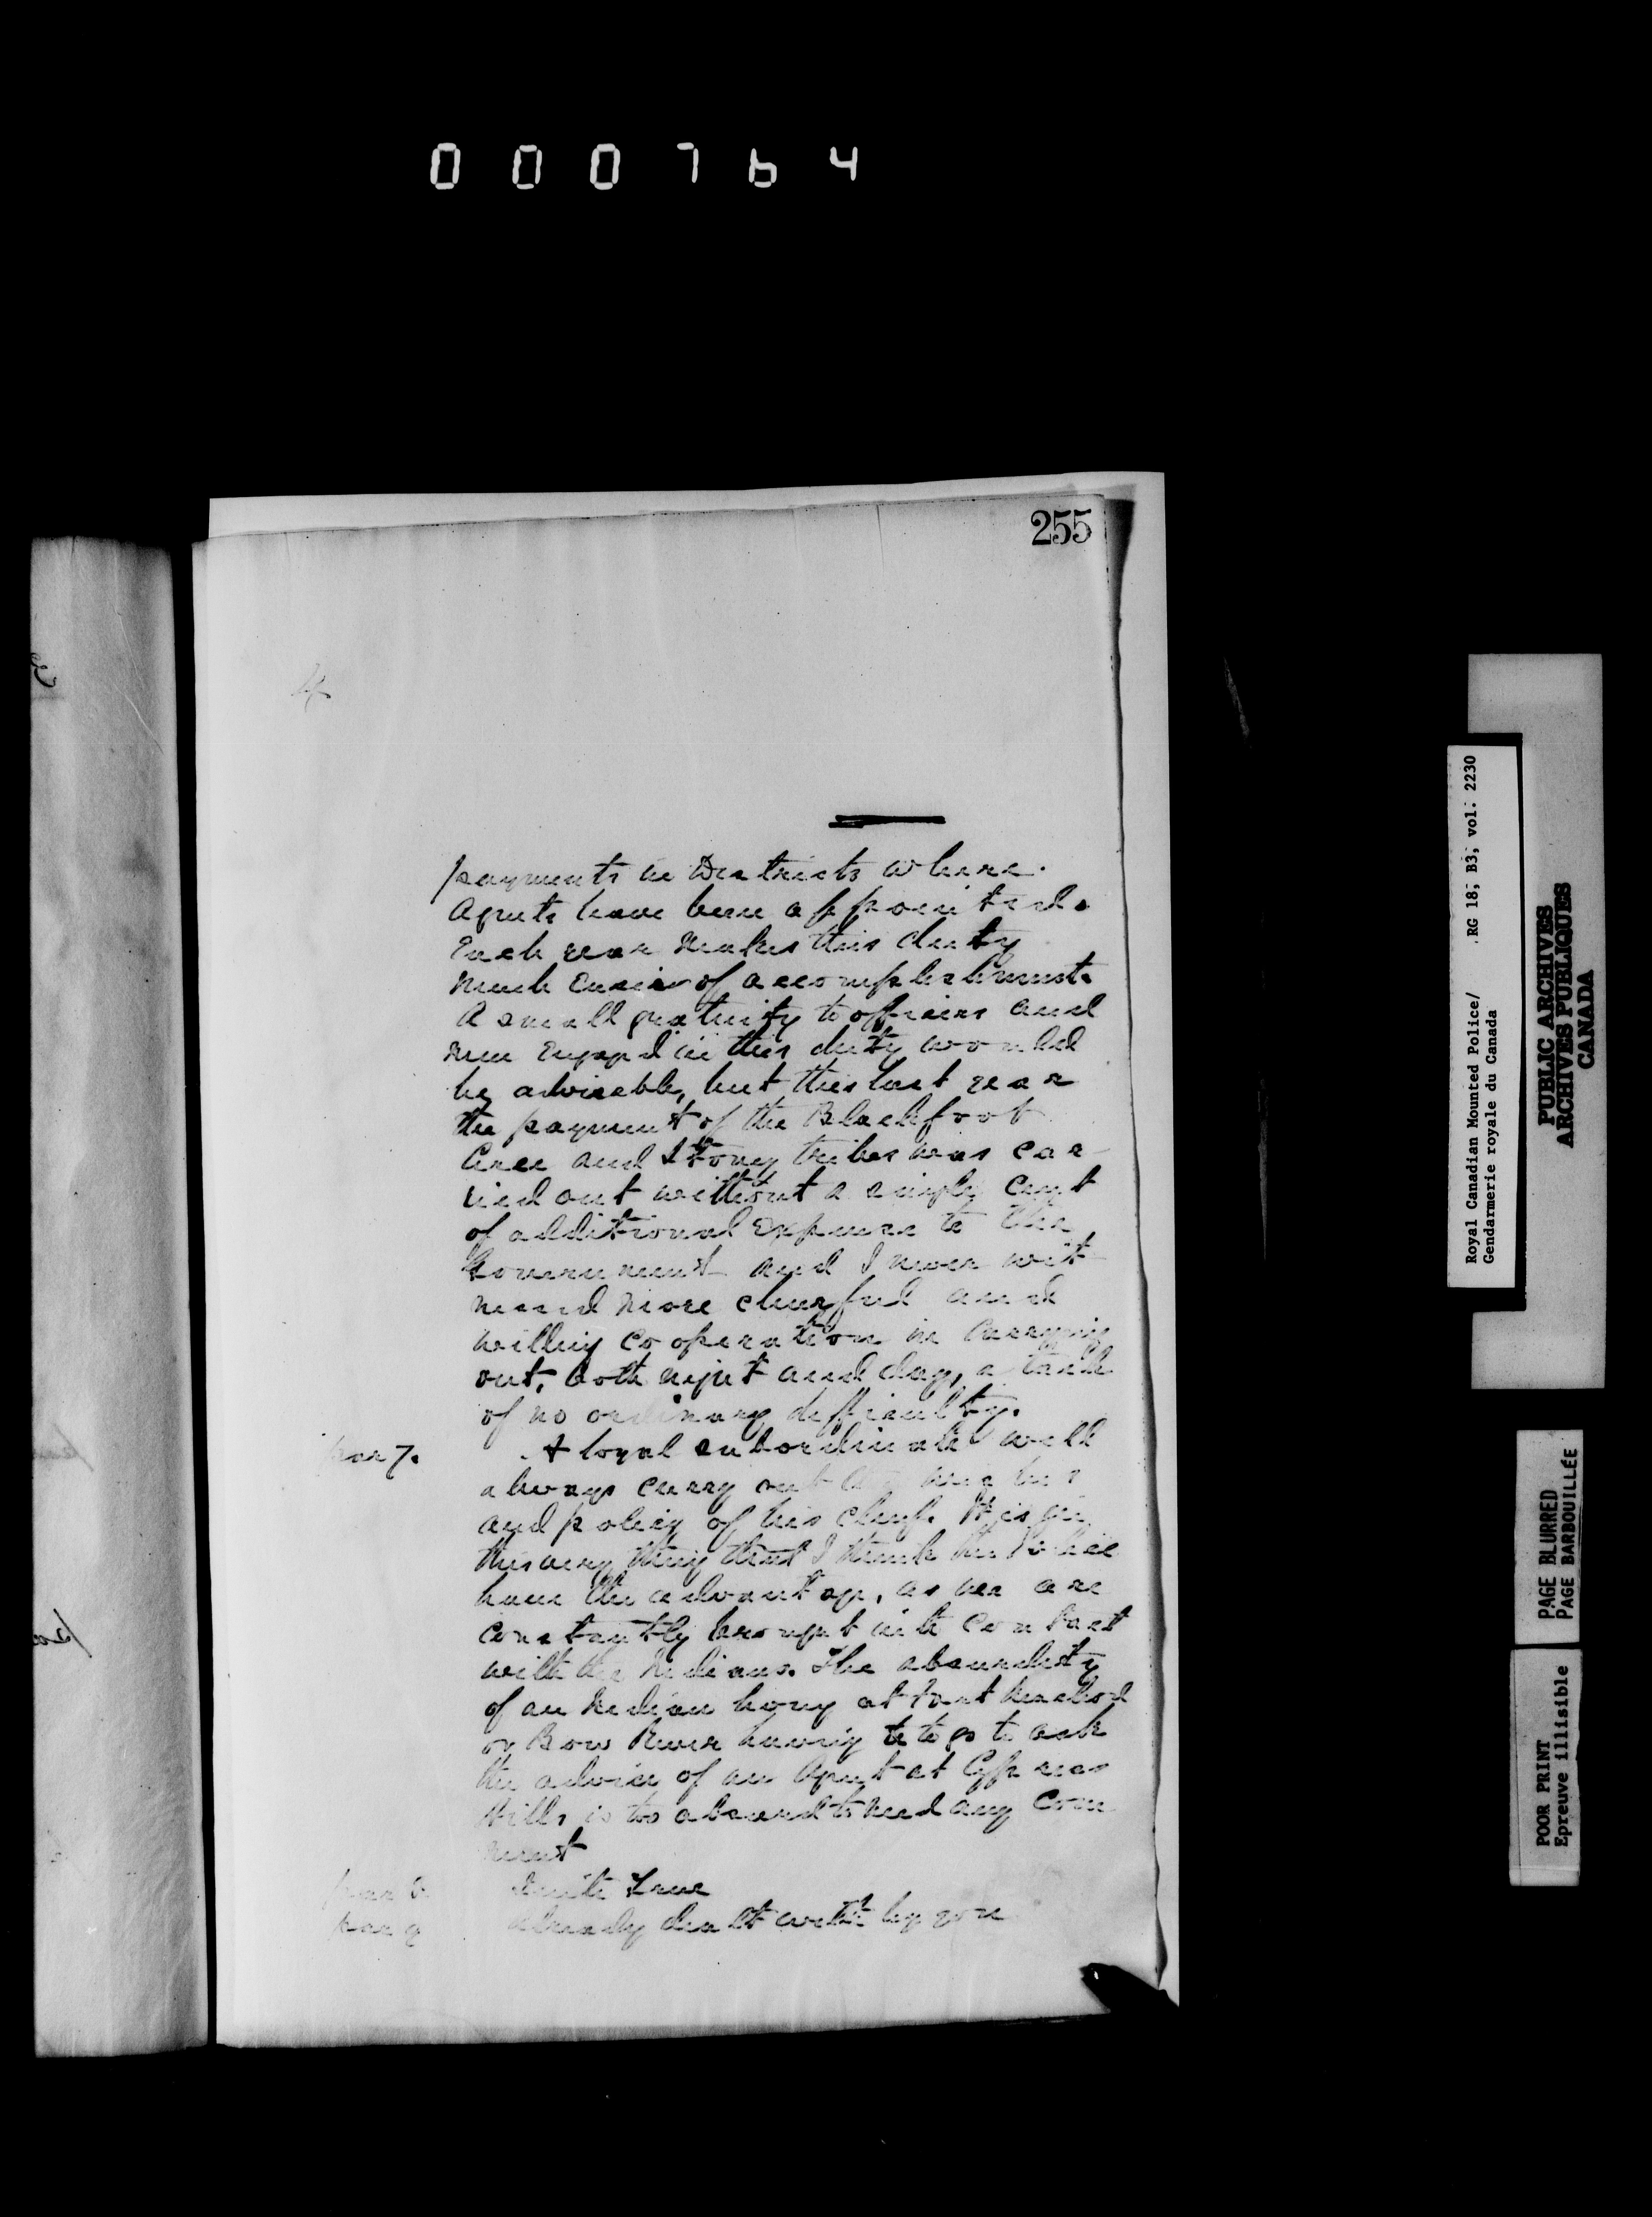 000764
255
4
payments in Districts where
Agents have been appointed.
Each year makes this duty
much easier of accomplishment.
A small gratuity to officers and
men engaged in this duty would
be advisable, but this last year
the payment of the Blackfoot
Cree and Stony tribes was car-
ried out without a single cent
of additional expense to the
Government and I never wit-
nessed more cheerful and
willing cooperation in carrying
out, both night and day, a task
of no ordinary difficulty.
par 7. A loyal subordinate will
always carry out the
and policy of his chief. It is in
this very thing that I think the Police
have the advantage, as we are
constantly brought into contact
with the Indians. The absurdity
of an Indian living at Fort Macleod
or Bow River having to go to ask
the advice of an Agent at Cypress
Hills is too absurd to need any com
ment
par 8 Quite true
par 9 Already dealt with by you
Royal Canadian Mounted Police/ RG 18, B3, vol: 2230
Gendarmerie royale du Canada
PUBLIC ARCHIVES
ARCHIVES PUBLIQUES
CANADA
PAGE BLURRED
PAGE BARBOUILLÉE
POOR PRINT
Epreuve illisible